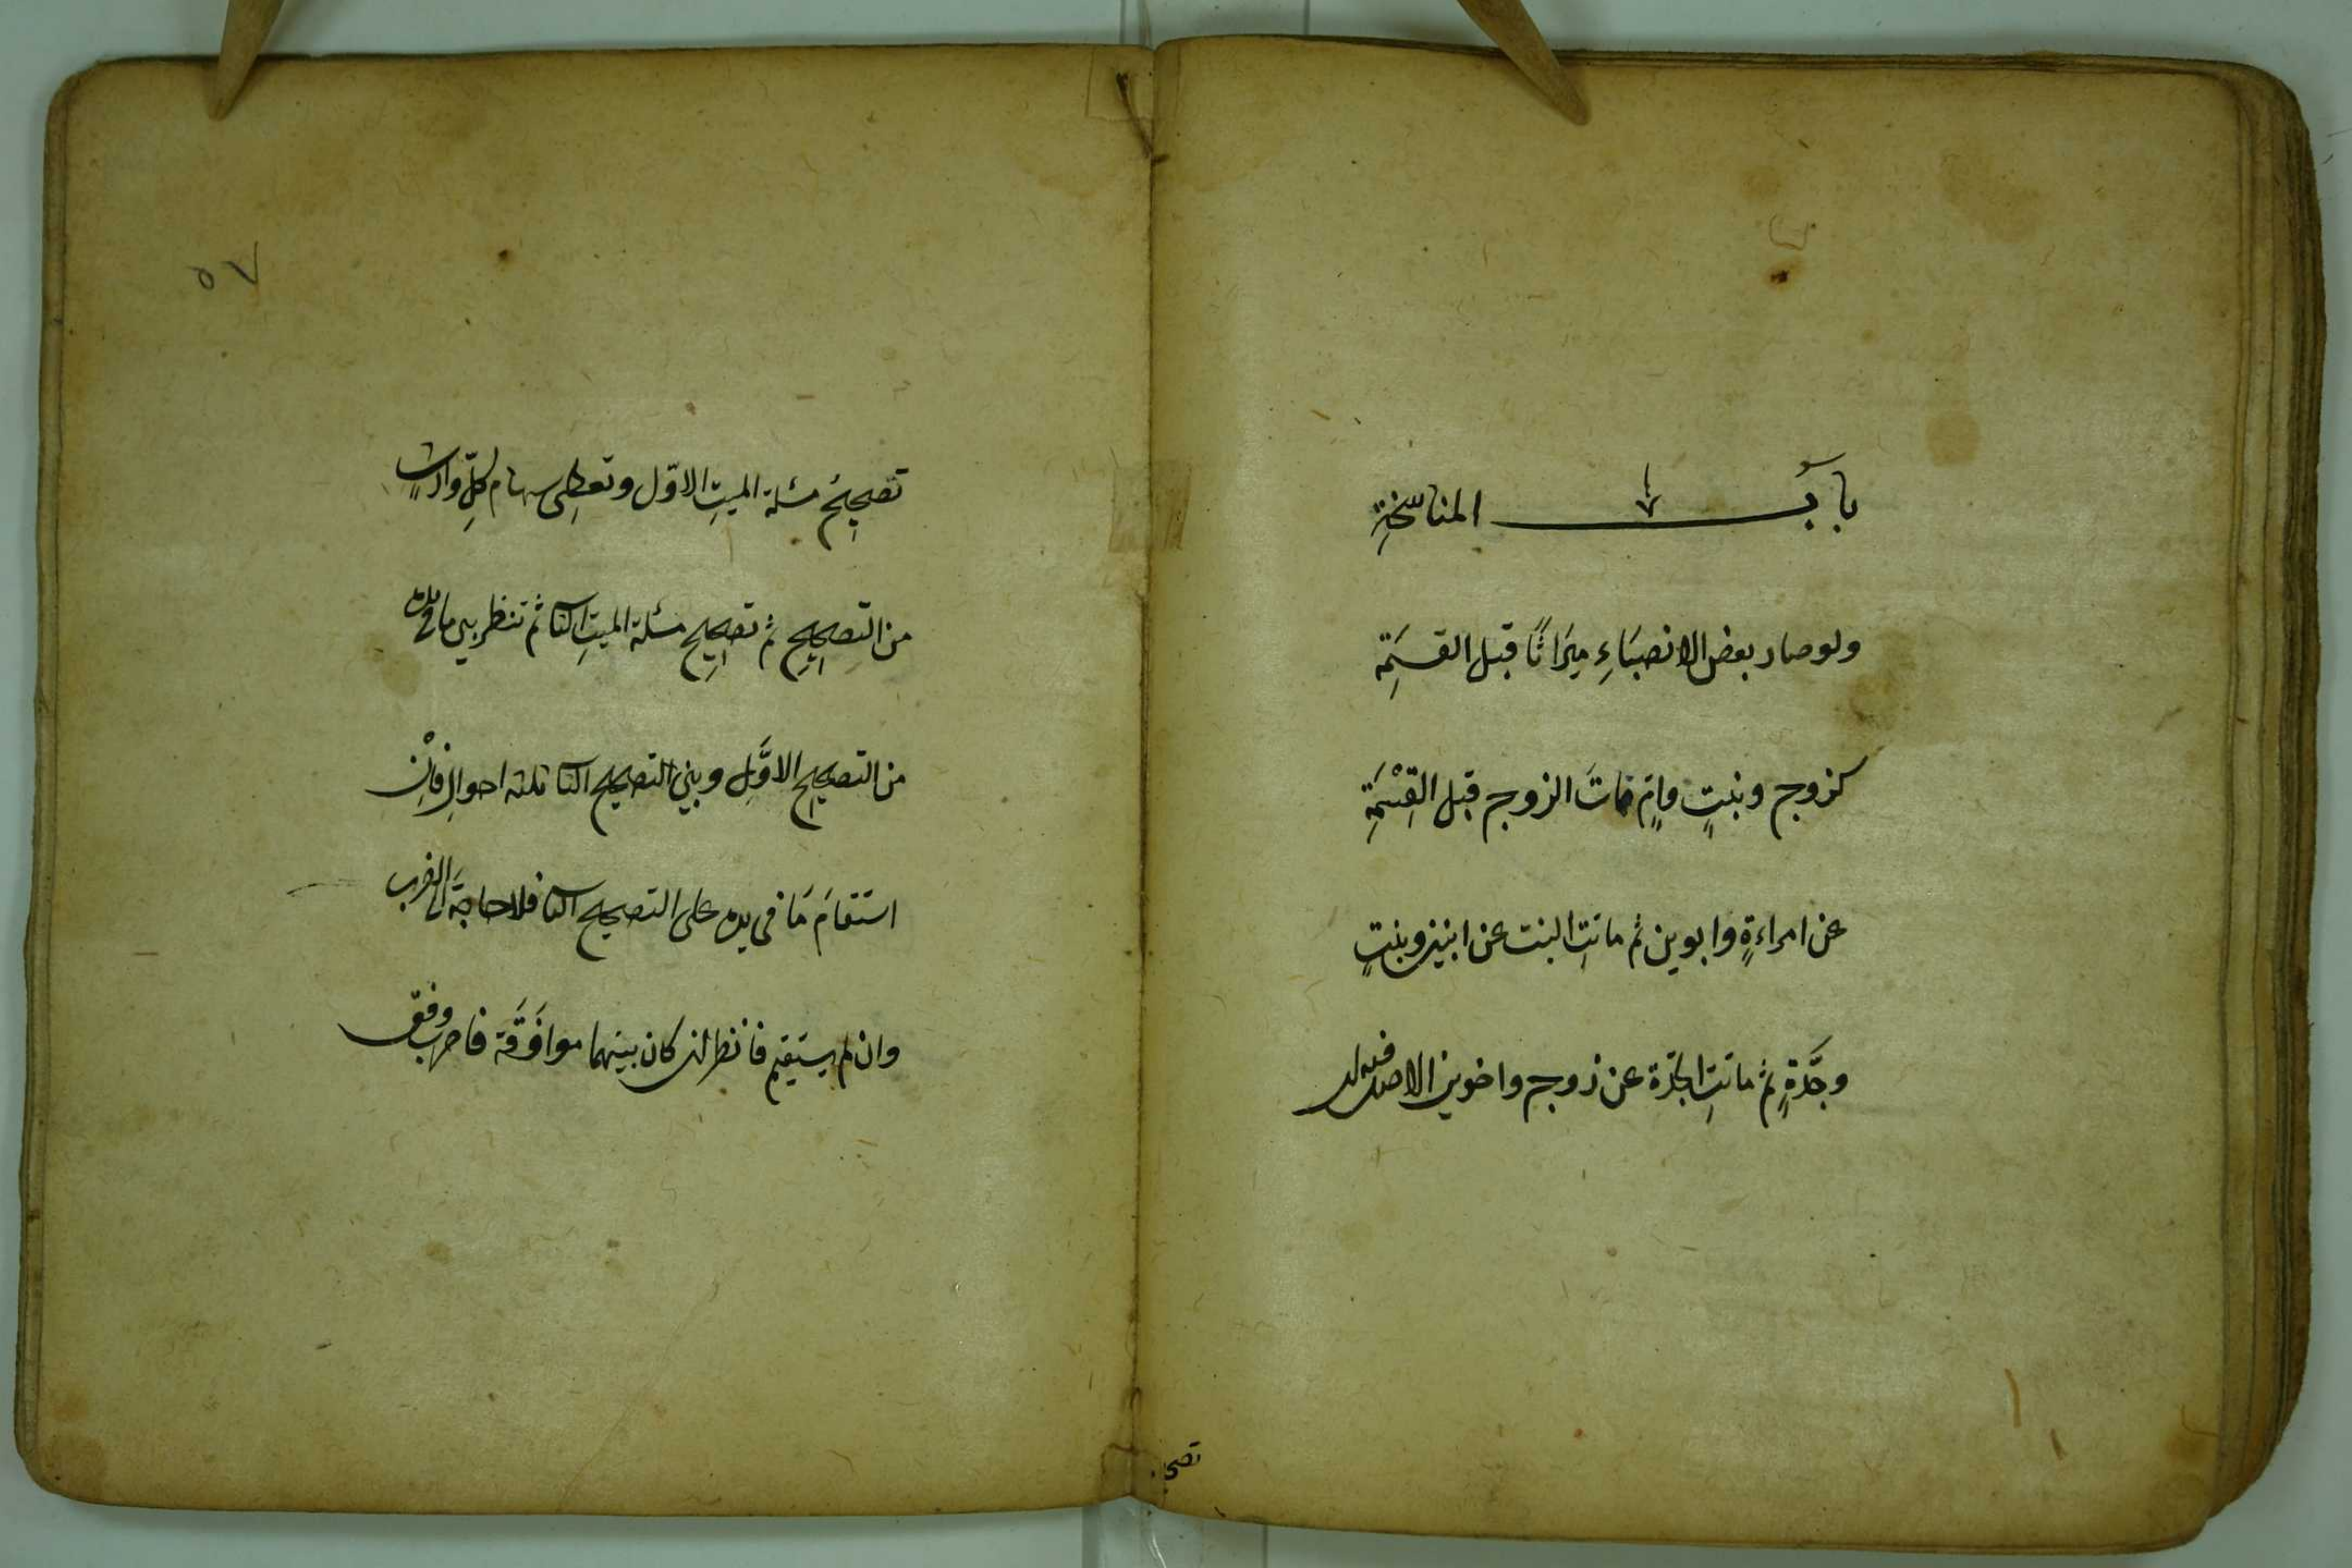 بابُ المناسخةِ
ولو صار بعض الانصبَاءِ ميَراثًا قبل القسَمِة
كزوج وبنتٍ وامٍ فماتَ الزوج قبل القِسْمَةِ
عن امراءةٍ وابوين ثم ماتتِ البنت عن ابنين وبنتٍ
وجَدَّةٍ ثم ماتتِ الجدّة عن زوج واخوين الاصل فيه ان
تصحيح
٥٧
تصحِيحُ مسئلة الميتِ الاوّل وتعطِى سهام كلِّ وارثٍ
من التصحِيحِ ثم تصحِيح مسئلة الميتِ الثا ثم تنظر بين ما فى يده
من التصحيح الاوَّلِ وبين التصحيح الثا ثلثة احوالٍ فاِنْ
استقامَ مَا فى يده على التصحيح الثا فلا حاجَة الى الضرب
وان لم يستَقِيم فانظر ان كان بينهما موافَقَة فاضرب وفق